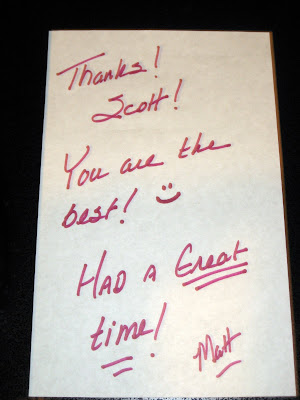 Thanks!
Scott!
You are the
best! :)
HAD A Great
time!
Matt